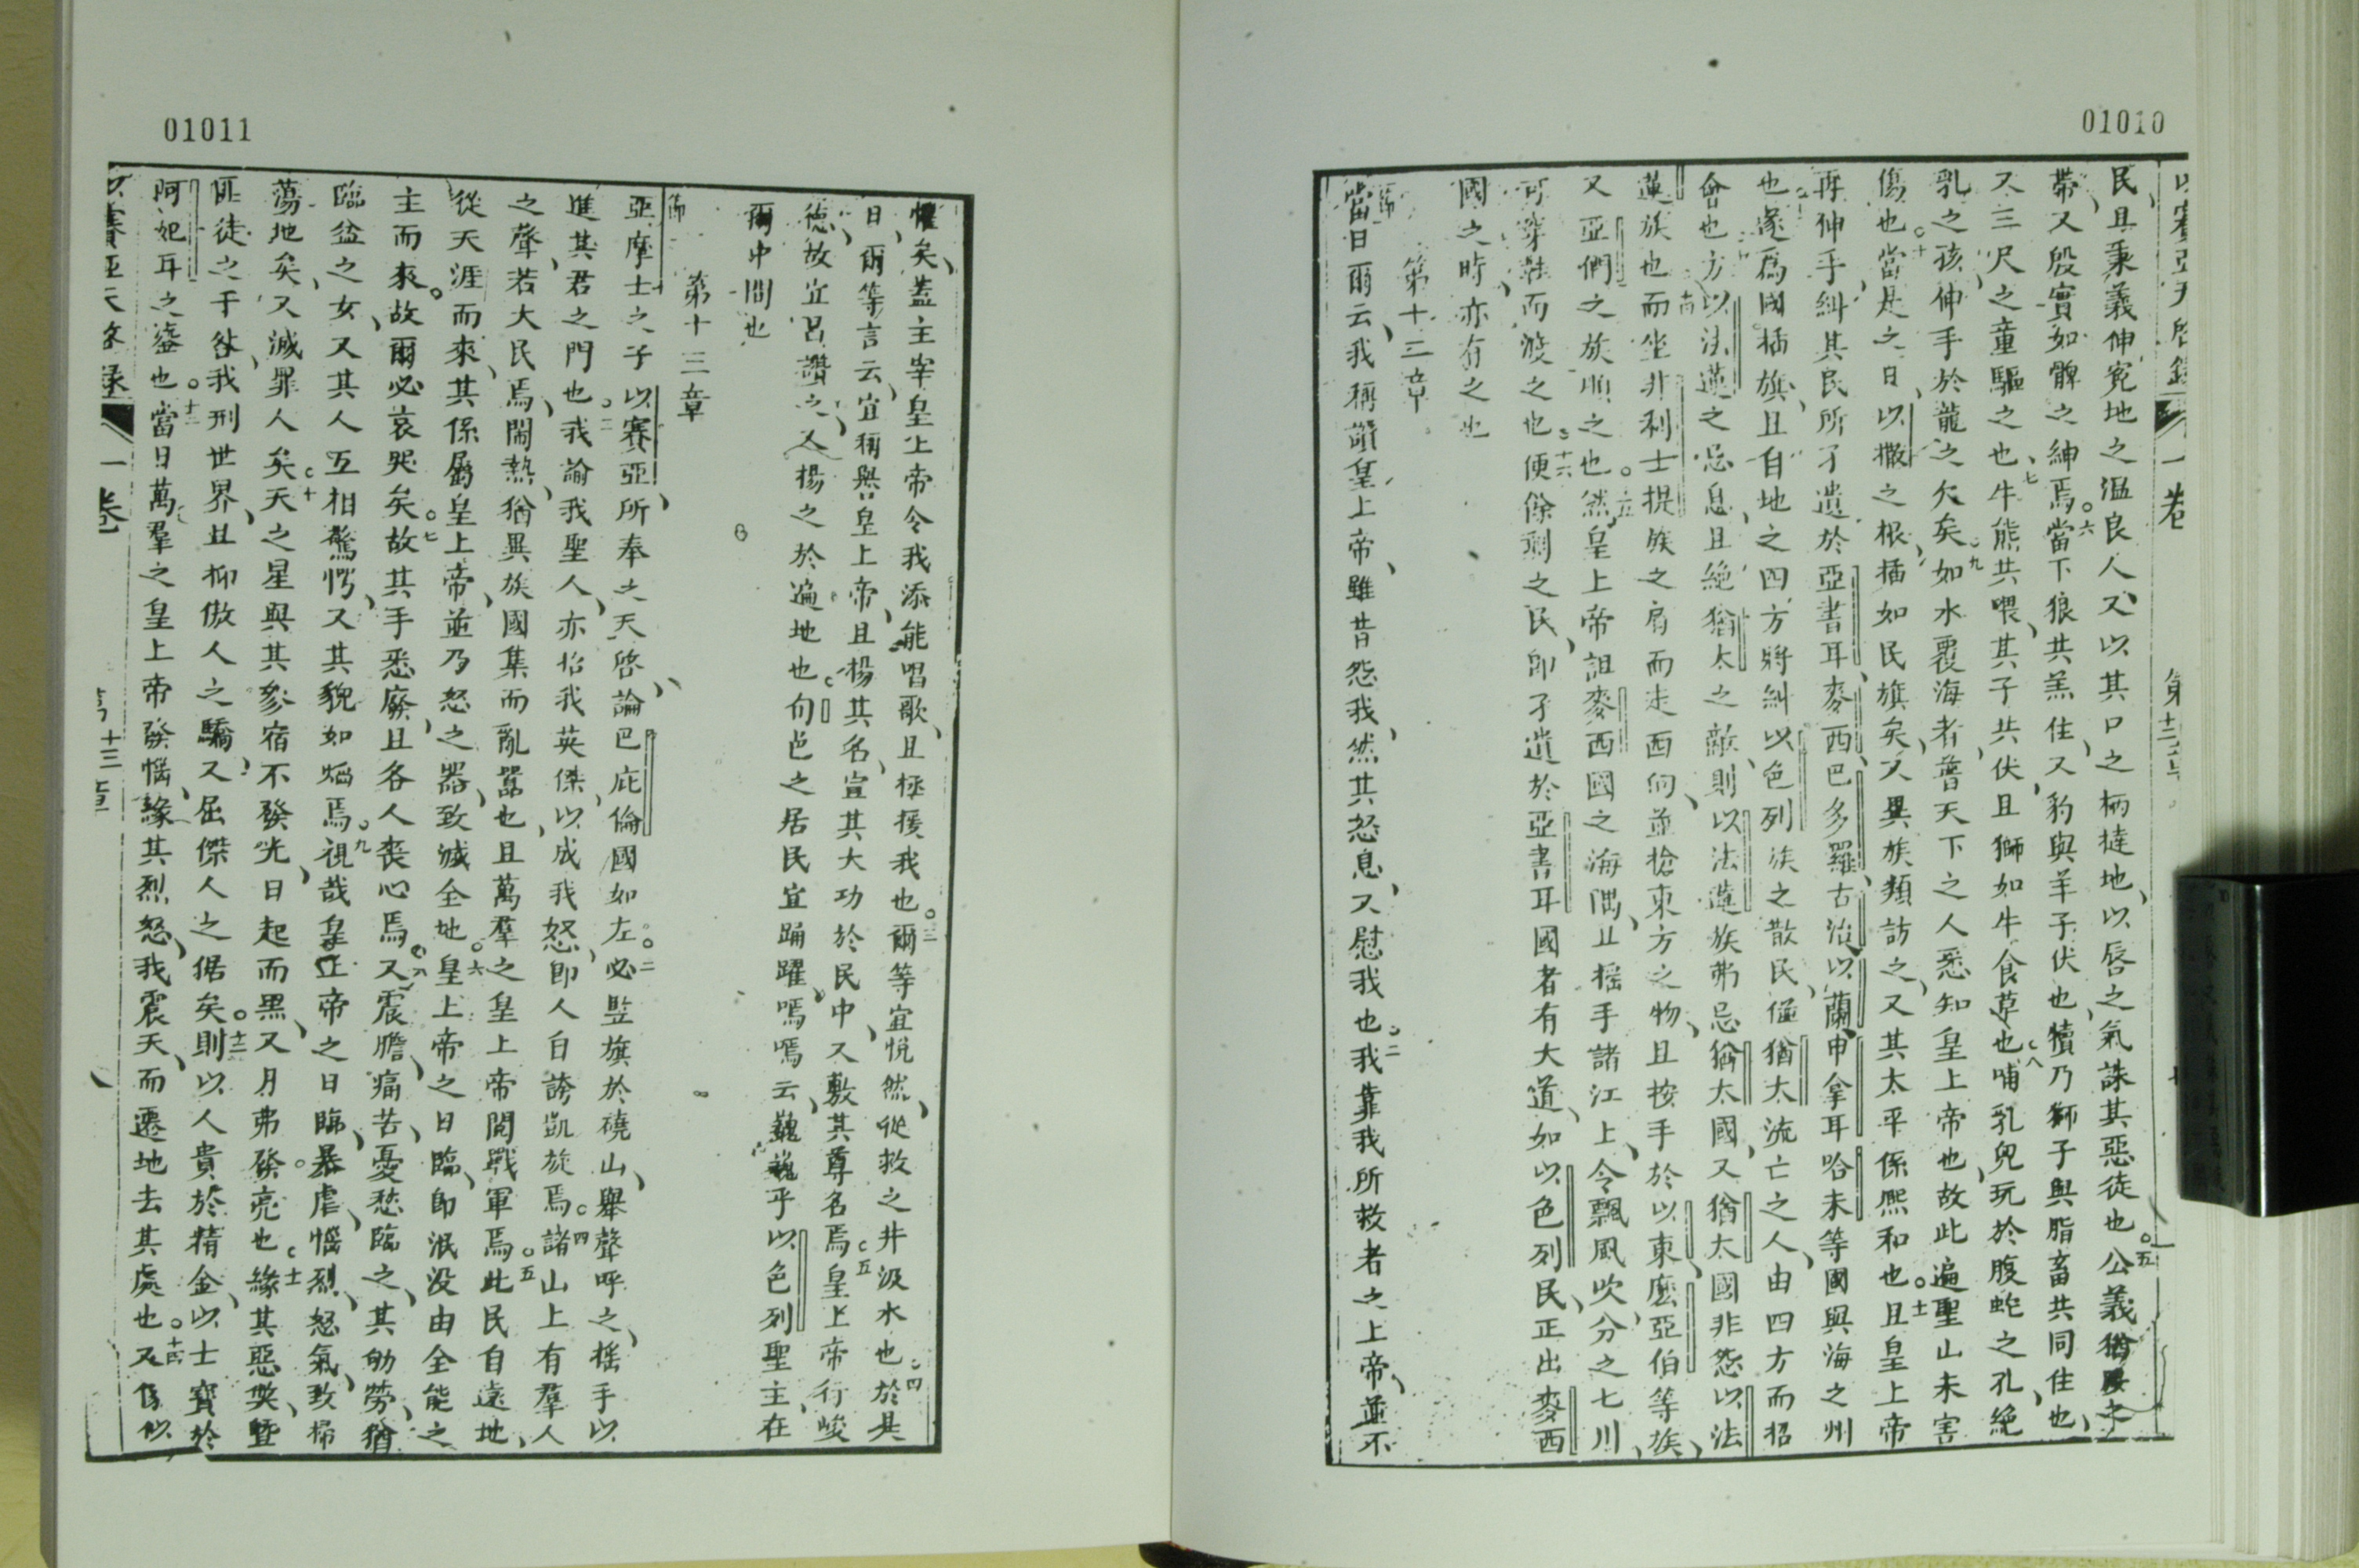 01010
以賽亞天啓錄 一卷 第十二章
民、且秉義伸寃地之温良人、又以其口之柄撻地、以唇之氣誅其惡徒也。五公義猶腰之
帶、又殷實如髀之紳焉。六當下狼共羔住、又豹與羊子伏也、犢乃獅子與脂畜共同住也、
又三尺之童驅之也、七牛熊共喂、其子共伏、且獅如牛食草也。八哺乳兒玩於腹蛇之孔、絶
乳之孩、伸手於龍之穴矣。九如水覆海者、普天下之人悉知皇上帝也、故此遍聖山未害
傷也。十當是之日、以撒之根、插如民旗矣、又異族類訪之、又其太平係熙和也。十一且皇上帝
再伸手、糾其民所孑遺於亞書耳、麥西、巴多羅、古治、以蘭、申拿耳、哈未等國與海之州
也。十二遂爲國插旗、且自地之四方、將糾以色列族之散民、傴猶大流亡之人、由四方而招
會也。十三方以法蓮之忌息、且絶猶太之敵、則以法蓮族弗忌猶太國、又猶太國非怨以法
蓮族也。十四而坐非利士提族之肩而走西向、並搶東方之物、且按手於以東、麽亞伯等族、
又亞們之族順之也。十五然皇上帝詛麥西國之海隅、且摇手諸江上、令飄風吹分之七川、
可穿鞋而渡之也。十六便餘剩之民、卽孑遺於亞書耳國者有大道、如以色列民、正出麥西
國之時、亦有之也
第十二章
節
當日爾云、我稱讚皇上帝、雖昔怨我、然其怒息、又慰我也。二我靠我所救者之上帝、並不
01011
懼矣、蓋主宰皇上帝令我添能唱歌、且極援我也。三爾等宜悅然、從救之井汲水也。四於其
日、爾等言云、宜稱與皇上帝、且揚其名、宣其大功於民中、又敷其尊名焉。五皇上帝行峻
德、故宜呂讚之、又揚之於遍地也。六旬邑之居民宜踊躍、嗚嗚云、巍巍乎以色列聖主在
爾中間也
第十三章
節
亞摩士之子以賽亞、所奉之天啓、論巴庇倫國如左。二必監旗於磽山、舉聲呼之、摇手以
進其君之門也。三我諭我聖人、亦招我英傑、以成我怒、卽人自誇凱旋焉。四諸山上有羣人
之聲、若大民焉、鬧熱、猶異族國集而亂嚣也、且萬羣之皇上帝閱戰軍焉。五此民自遠地、
從天涯而來、其係屬皇上帝、並乃怒之器、致滅全地。六皇上帝之日臨、卽泯没由全能之
主而來。故爾必哀哭矣。七故其手悉廢、且各人喪心焉。八又震膽、痛苦、憂愁臨之、其劬勞、猶
臨盆之女、又其人互相驚愕、又其貌如焰焉。九視哉、皇上帝之日臨、暴虐、惱烈、怒氣、致掃
蕩地矣、又滅罪人矣。十天之星與其參宿不發光、日起而黑、又月弗發亮也。十一緣其惡獎、暨
匪徒之手咎、我刑世界、且抑傲人之驕、又屈傑人之倨矣。十二則以人貴於精金、以士寶於
阿妃耳之鎏也。十三當日萬羣之皇上帝發惱、緣其烈怒、我震天、而遷地去其處也。十四又係似
以賽亞天啓錄 一卷 第十三章